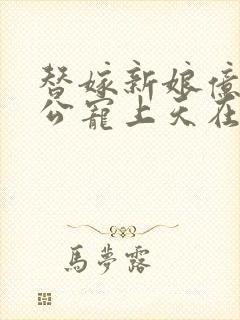 替嫁新娘億
公寵上天在
馬夢露